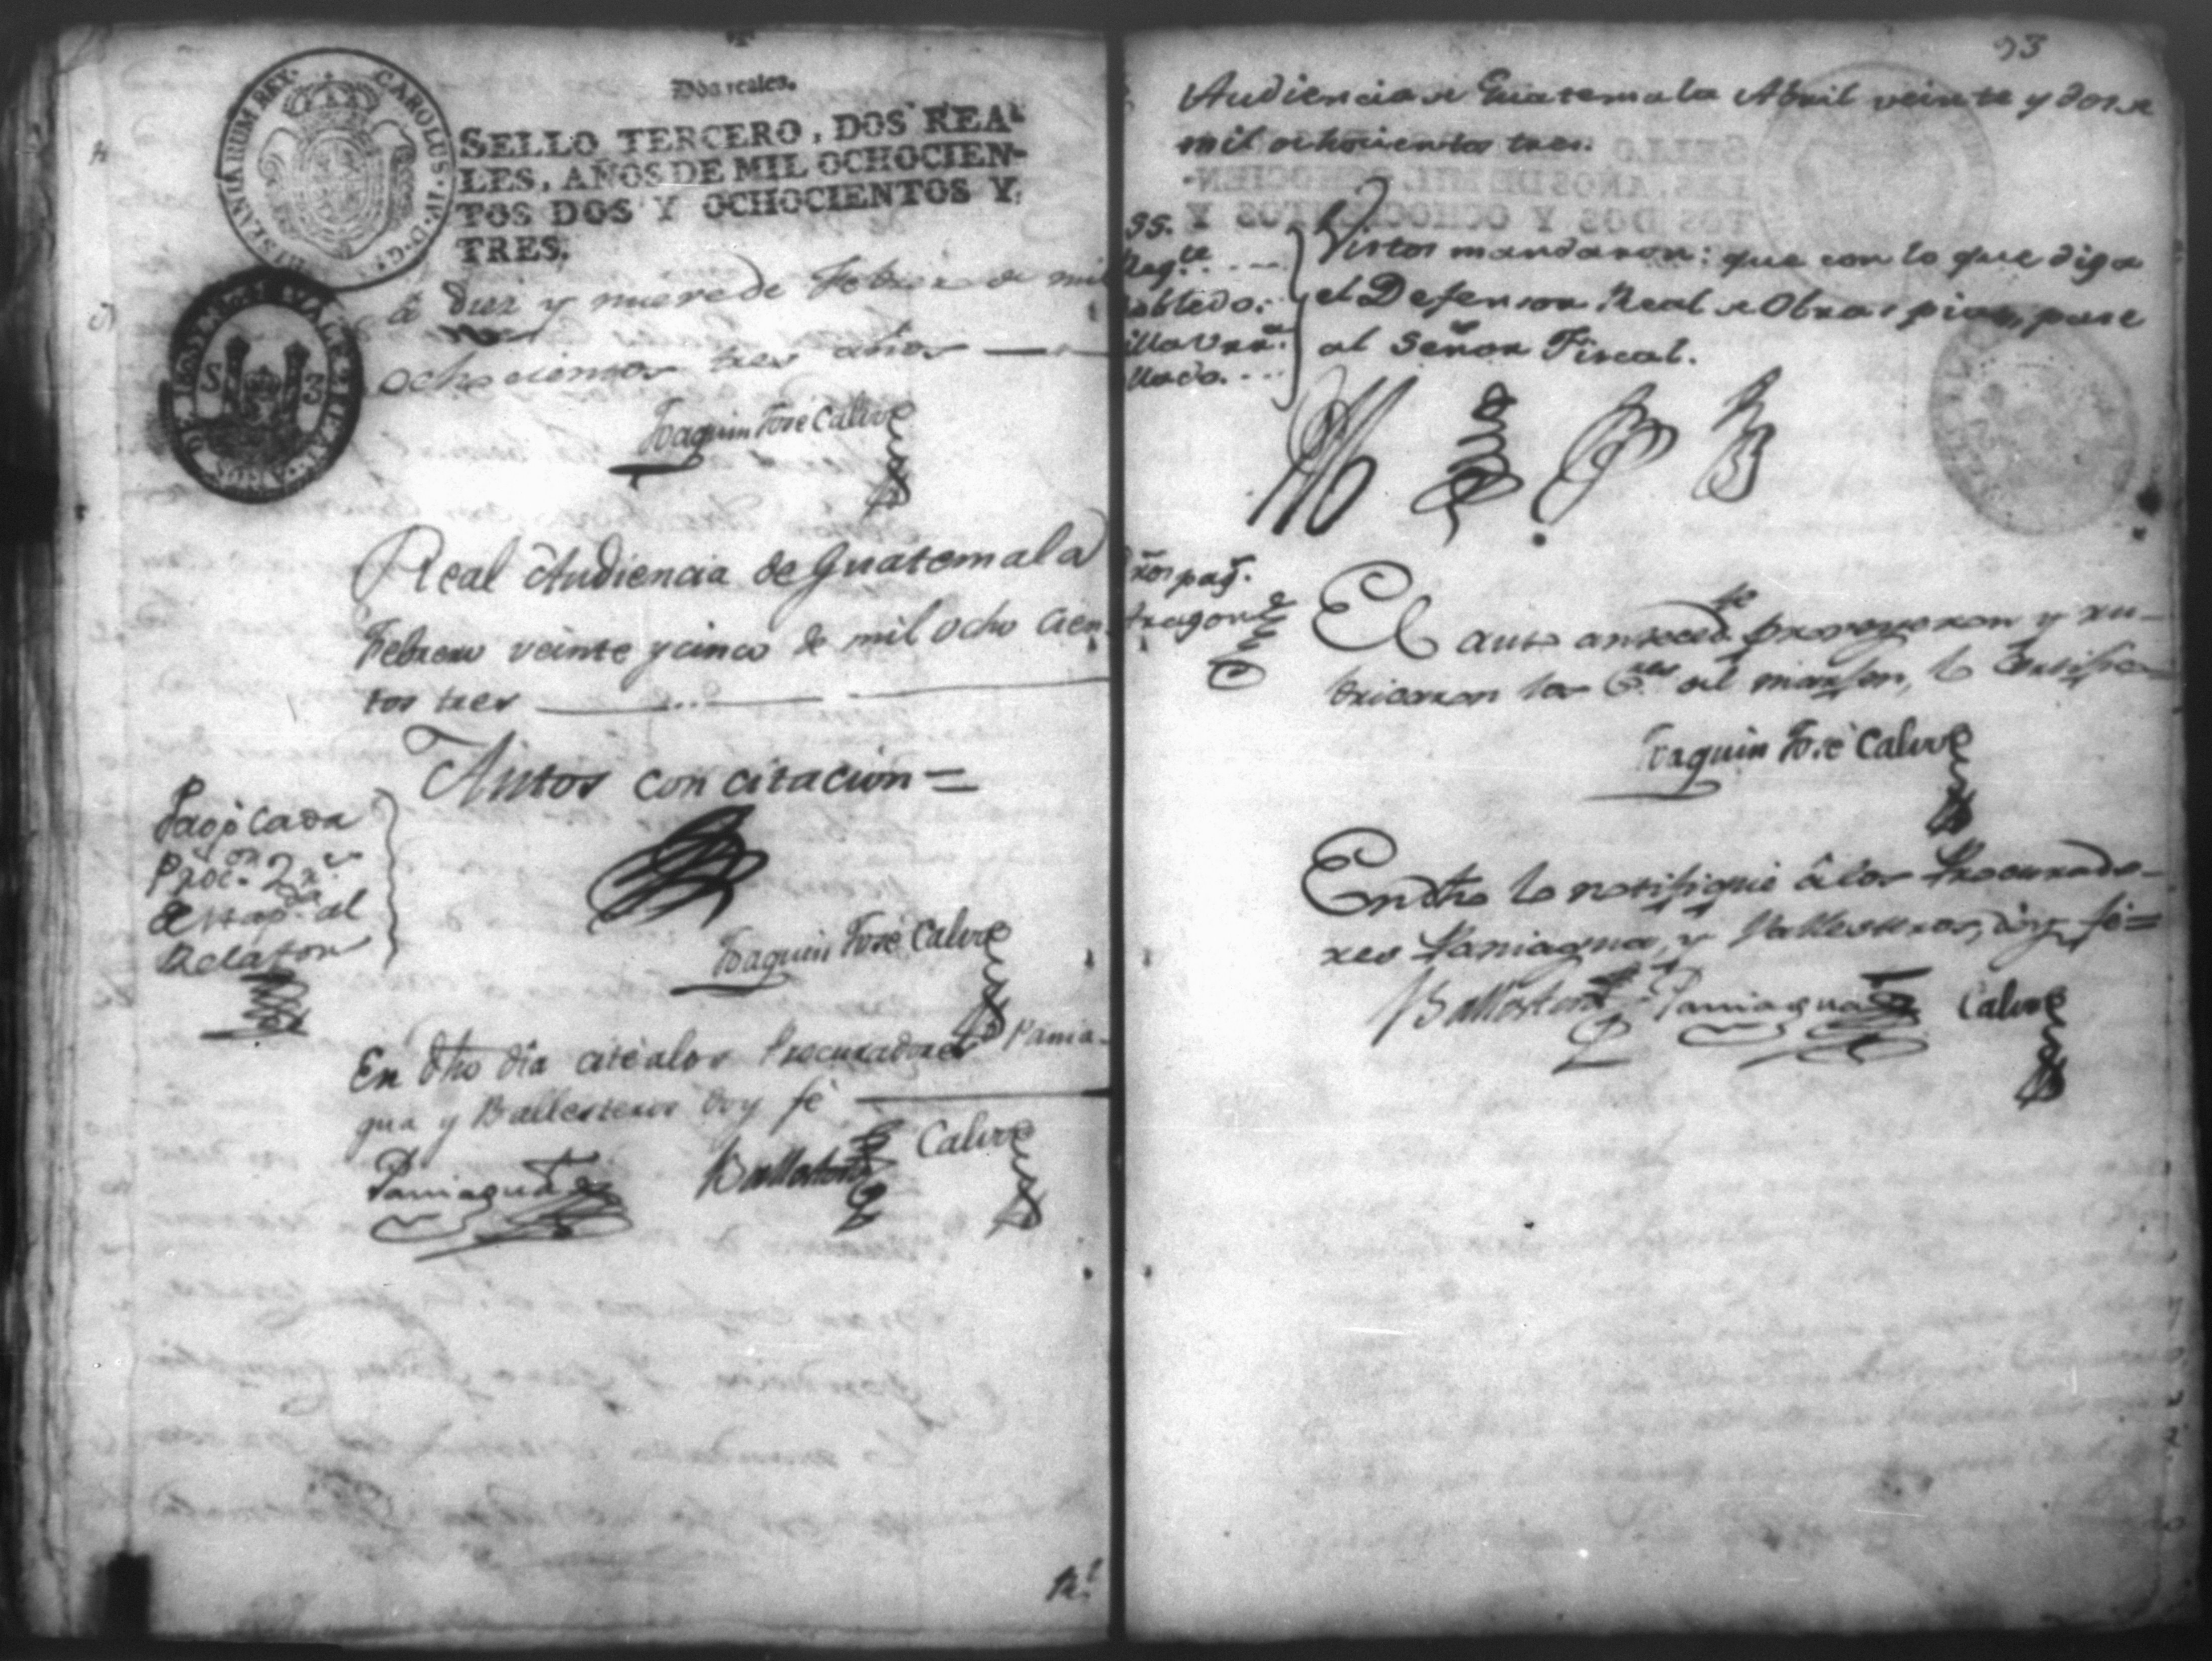 Dos reales.
CAROLUS·IV·D·G· HISPANIARUM REX·
SELLO TERCERO, DOS REA-
LES, AÑOS DE MIL OCHOCIEN-
TOS DOS Y OCHOCIENTOS Y
TRES.
S 3
â diez y nuevede Febrero de mil
ochocientos tres años
Joaquin José Calvo
Real Audiencia de Guatemala
Febrero veinte y cinco de mil ocho cien
tos tres
Autos con citacion =
Pagó cada
Proc.on 2 r.s
al
Relator
Joaquin José Calvo
En dho dia cité alos Procuradores Pania-
gua y Ballesteros doy fé
Paniagua Ballesteros Calvo
R.l
93
Audiencia de Guatemala Abril veinte y dos de
mil ochocientos tres.
SS.
Reg.te
obledo.
illa Urr.a
llado.
Vistos mandaron: que con lo que diga
el Defensor Real de Obras pias, pase
al Señor Fiscal.
El auto anteced.te proveyeron y ru-
bricaron los S.res del margen, lo Certifico
Joaquin José Calvo
En dho lo notifiqué â los Procurado-
res Paniagua, y Vallesteros, doy fé=
Ballesteros Paniagua Calvo